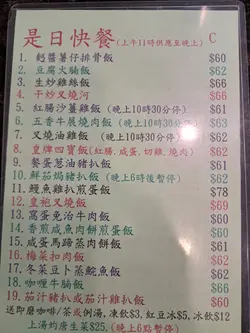 是日快餐(上午11時供應至晚上) C
1. 豉醬薯仔排骨飯 $60
2. 豆腐火腩飯 $62
3. 生炒雞絲飯 $62
4. 干炒叉燒河 $62
5. 紅腸沙薑雞飯 (晚上10時30分停) $61
6. 五香牛展燒肉飯 (晚上10時30分停) $63
7. 叉燒油雞飯 (晚上10時30分停) $61
8. 皇牌四寶飯(紅腸.咸蛋.切雞.燒肉) $62
9. 餐蛋蔥油豬扒飯 $61
10. 鮮茄焗豬扒飯 (晚上6時後暫停) $62
11. 鰻魚雞扒煎蛋飯 $78
12. 皇袍叉燒飯 $69
13. 窩蛋免治牛肉飯 $60
14. 香煎咸魚肉餅煎蛋飯 $60
15. 咸蛋馬蹄蒸肉餅飯 $61
16. 梅菜扣肉飯 $62
17. 冬菜豆卜蒸鯇魚飯 $62
18. 咖喱牛腩飯 $62
19. 茄汁豬扒或茄汁雞扒飯 $60
送即磨咖啡/茶或例湯,凍飲$3,紅豆冰$5,冰飲$12
上湯灼唐生菜$25.(晚上6點暫停)